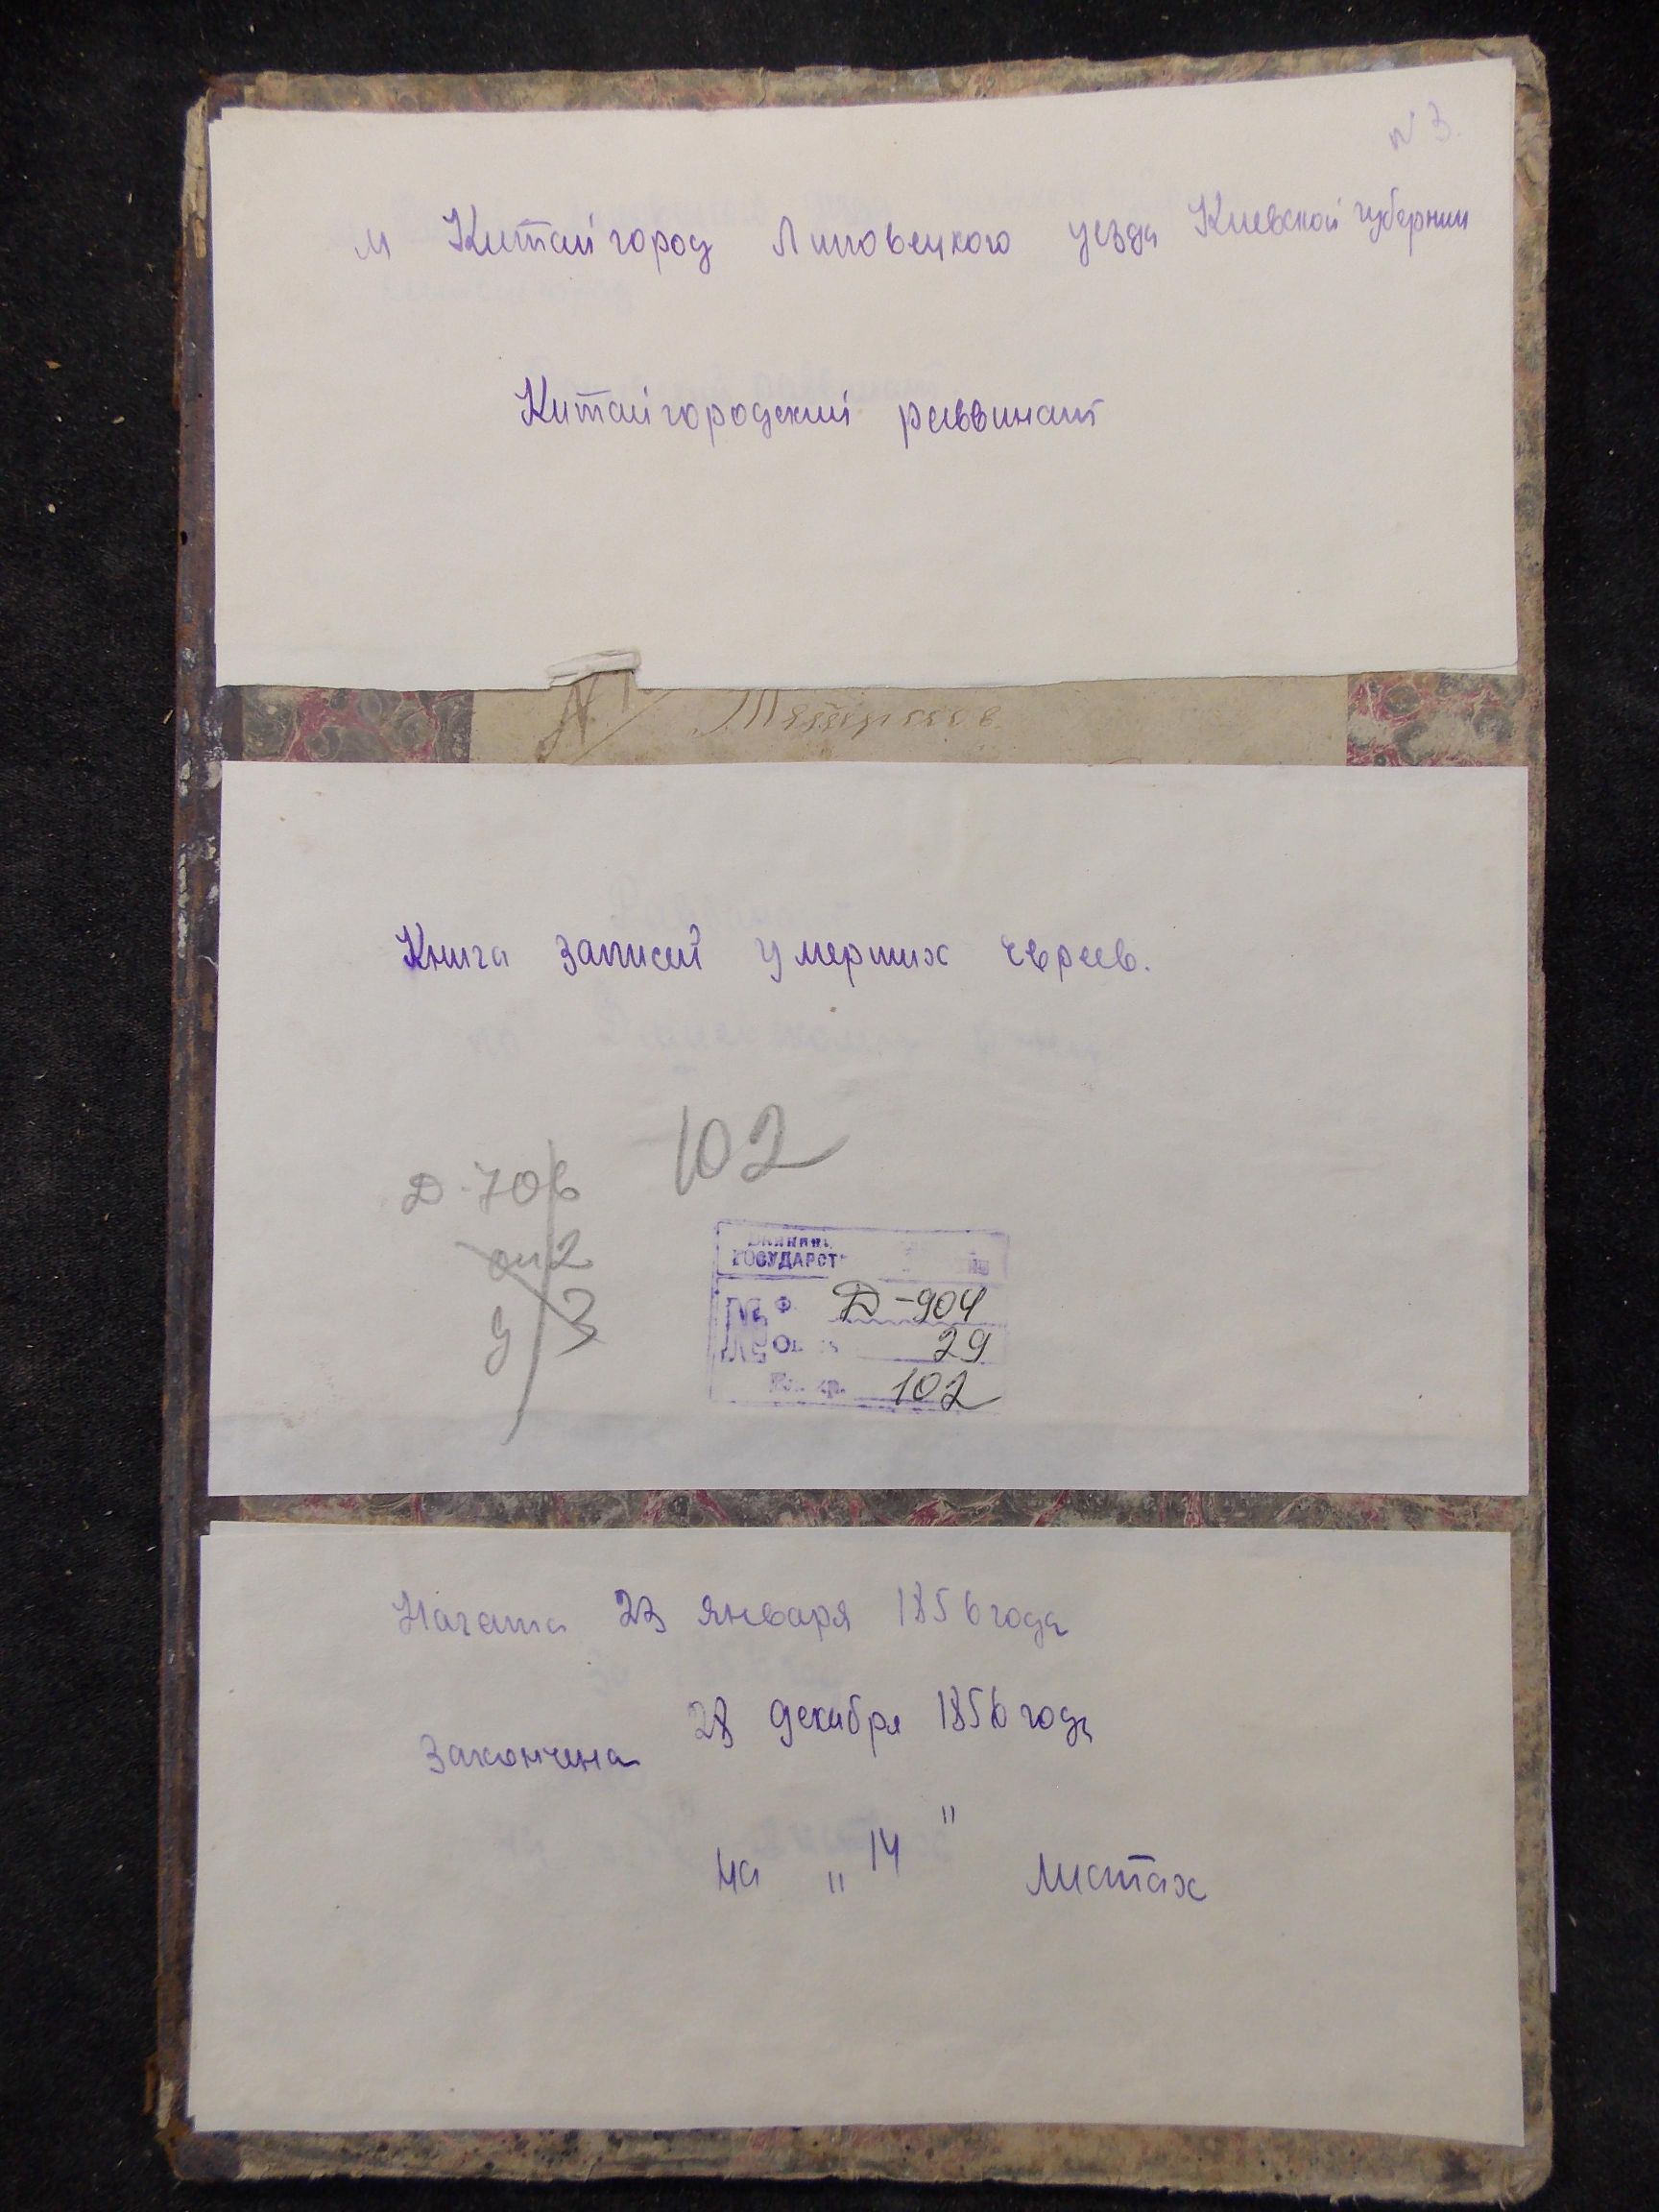 № 3.
м Китайгород Липовецкого уезда Киевской губернии
Китайгородский раввинат
№ 1
Книга записей умерших евреев.
102
Д-706
оп 2
д 3
ГОСУДАРСТ
№ Ф. Д-904
Оп 29
Ед. хр. 102
Начата 23 января 1856 года
Закончена 28 декабря 1856 года
на " 14 " листах